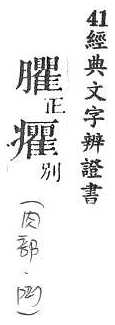 41經典文字辨證書
臞正癯別
(肉部.四)